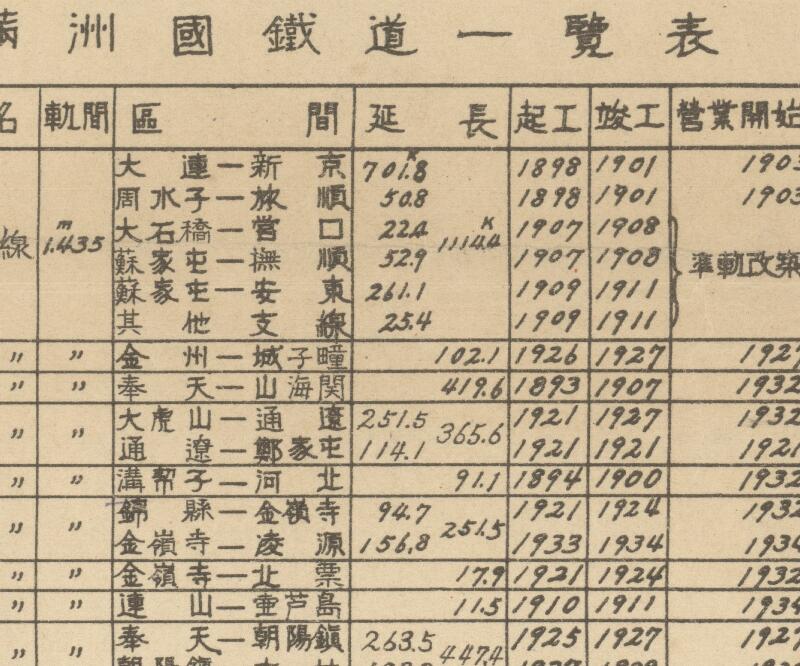 洲國鐵道一覽表
名 軌間 區間 延長 起工 竣工 營業開始
大連—新京 701.8K 1898 1901 1903
周水子—旅順 50.8 1898 1901 1903
線 1.435m 大石橋—営口 22.4 1114.4K 1907 1908
蘇家屯—撫順 52.9 1907 1908 準軌改築
蘇家屯—安東 261.1 1909 1911
其他支線 25.4 1909 1911
〃 〃 金州—城子疃 102.1 1926 1927 1927
〃 〃 奉天—山海関 419.6 1893 1907 1932
大虎山—通遼 251.5 1921 1927 1932
〃 〃 365.6
通遼—鄭家屯 114.1 1921 1921 1921
〃 〃 溝幇子—河北 91.1 1894 1900 1932
錦縣—金嶺寺 94.7 1921 1924 1932
〃 〃 251.5
金嶺寺—凌源 156.8 1933 1934 1934
〃 〃 金嶺寺—北票 17.9 1921 1924 1932
〃 〃 連山—壷芦島 11.5 1910 1911 1934
奉天—朝陽鎮 263.5 1925 1927 1927
〃 〃 447.4